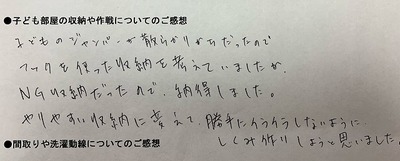 ●子ども部屋の収納や作戦についてのご感想
子どものジャンパーが散らかりがちだったので
フックを使った収納を考えていましたが、
NG収納だったので、納得しました。
やりやすい収納に変えて、勝手にイライラしないように
しくみ作りしようと思いました。
●間取りや洗濯動線についてのご感想